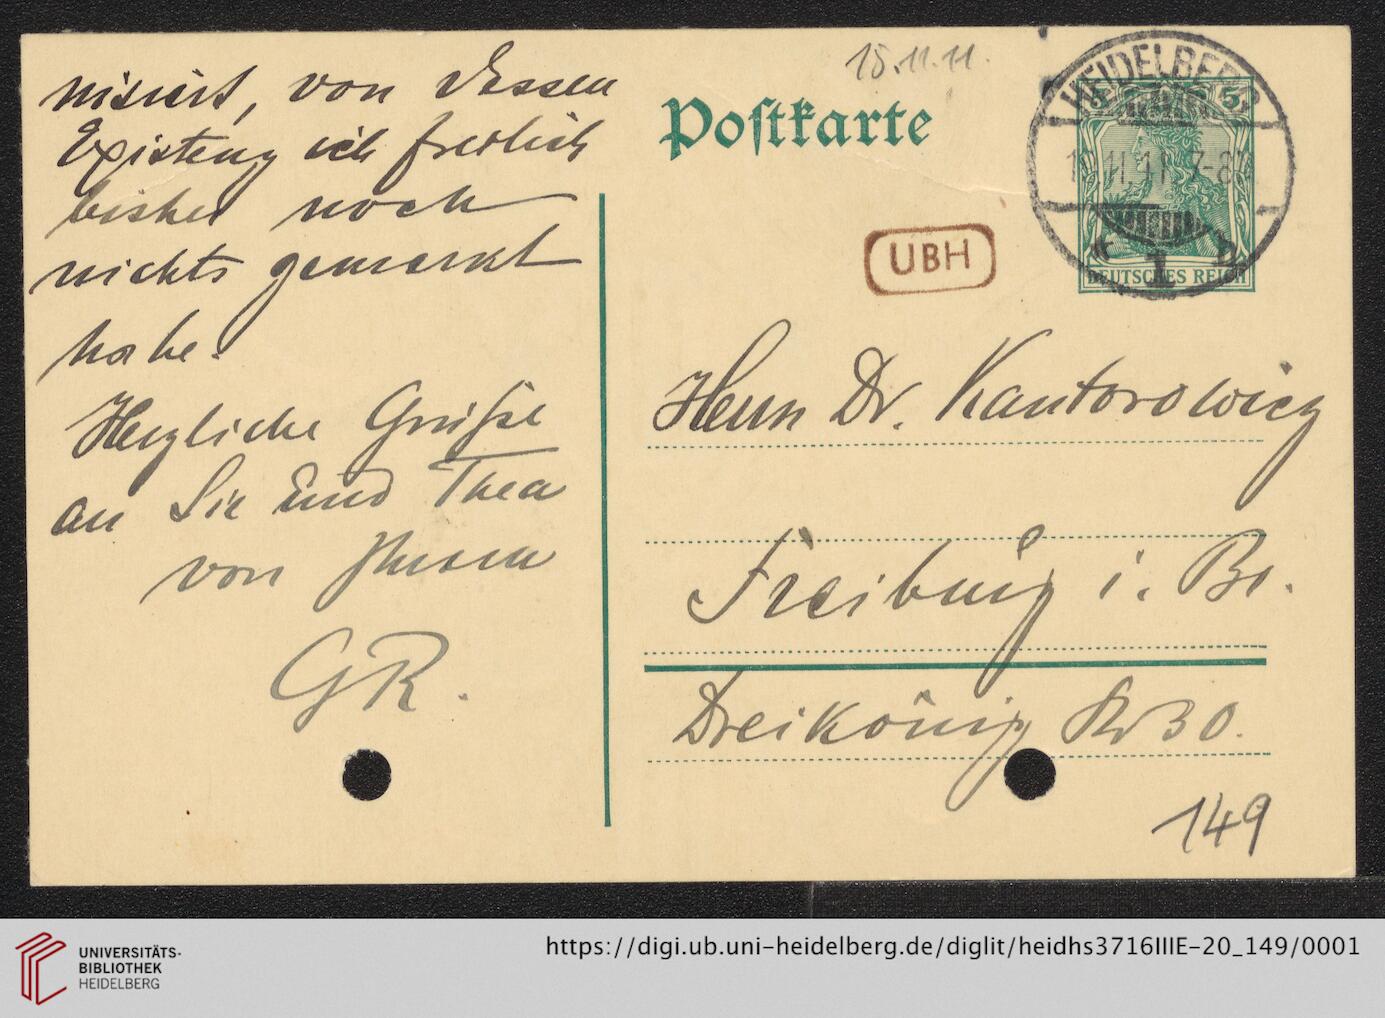 nisiert, von dessen
Existenz ich freilich
bisher noch
nichts gemerkt
habe.
Herzliche Grüße
an Sie und Thea
von Ihrem
GR.
15.11.11.
Postkarte
HEIDELBERG
11.11. 7-8
1
5 5
DEUTSCHES REICH
UBH
Herrn Dr. Kantorowicz
Freiburg i. Br.
Dreikönig Str 30.
149
UNIVERSITÄTS-
BIBLIOTHEK
HEIDELBERG
https://digi.ub.uni-heidelberg.de/diglit/heidhs3716IIIE-20_149/0001